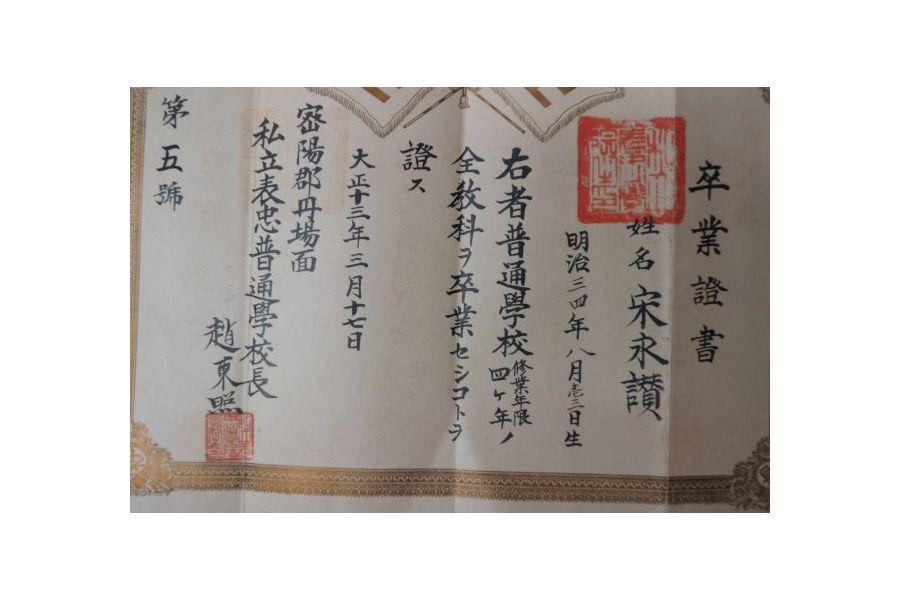 卒業證書
姓名 宋永讃
明治三四年八月壱三日生
右者普通學校修業年限四ヶ年ノ
全教科ヲ卒業セシコトヲ
證ス
大正十三年三月十七日
密陽郡丹場面
私立表忠普通學校長
趙東照
第五號